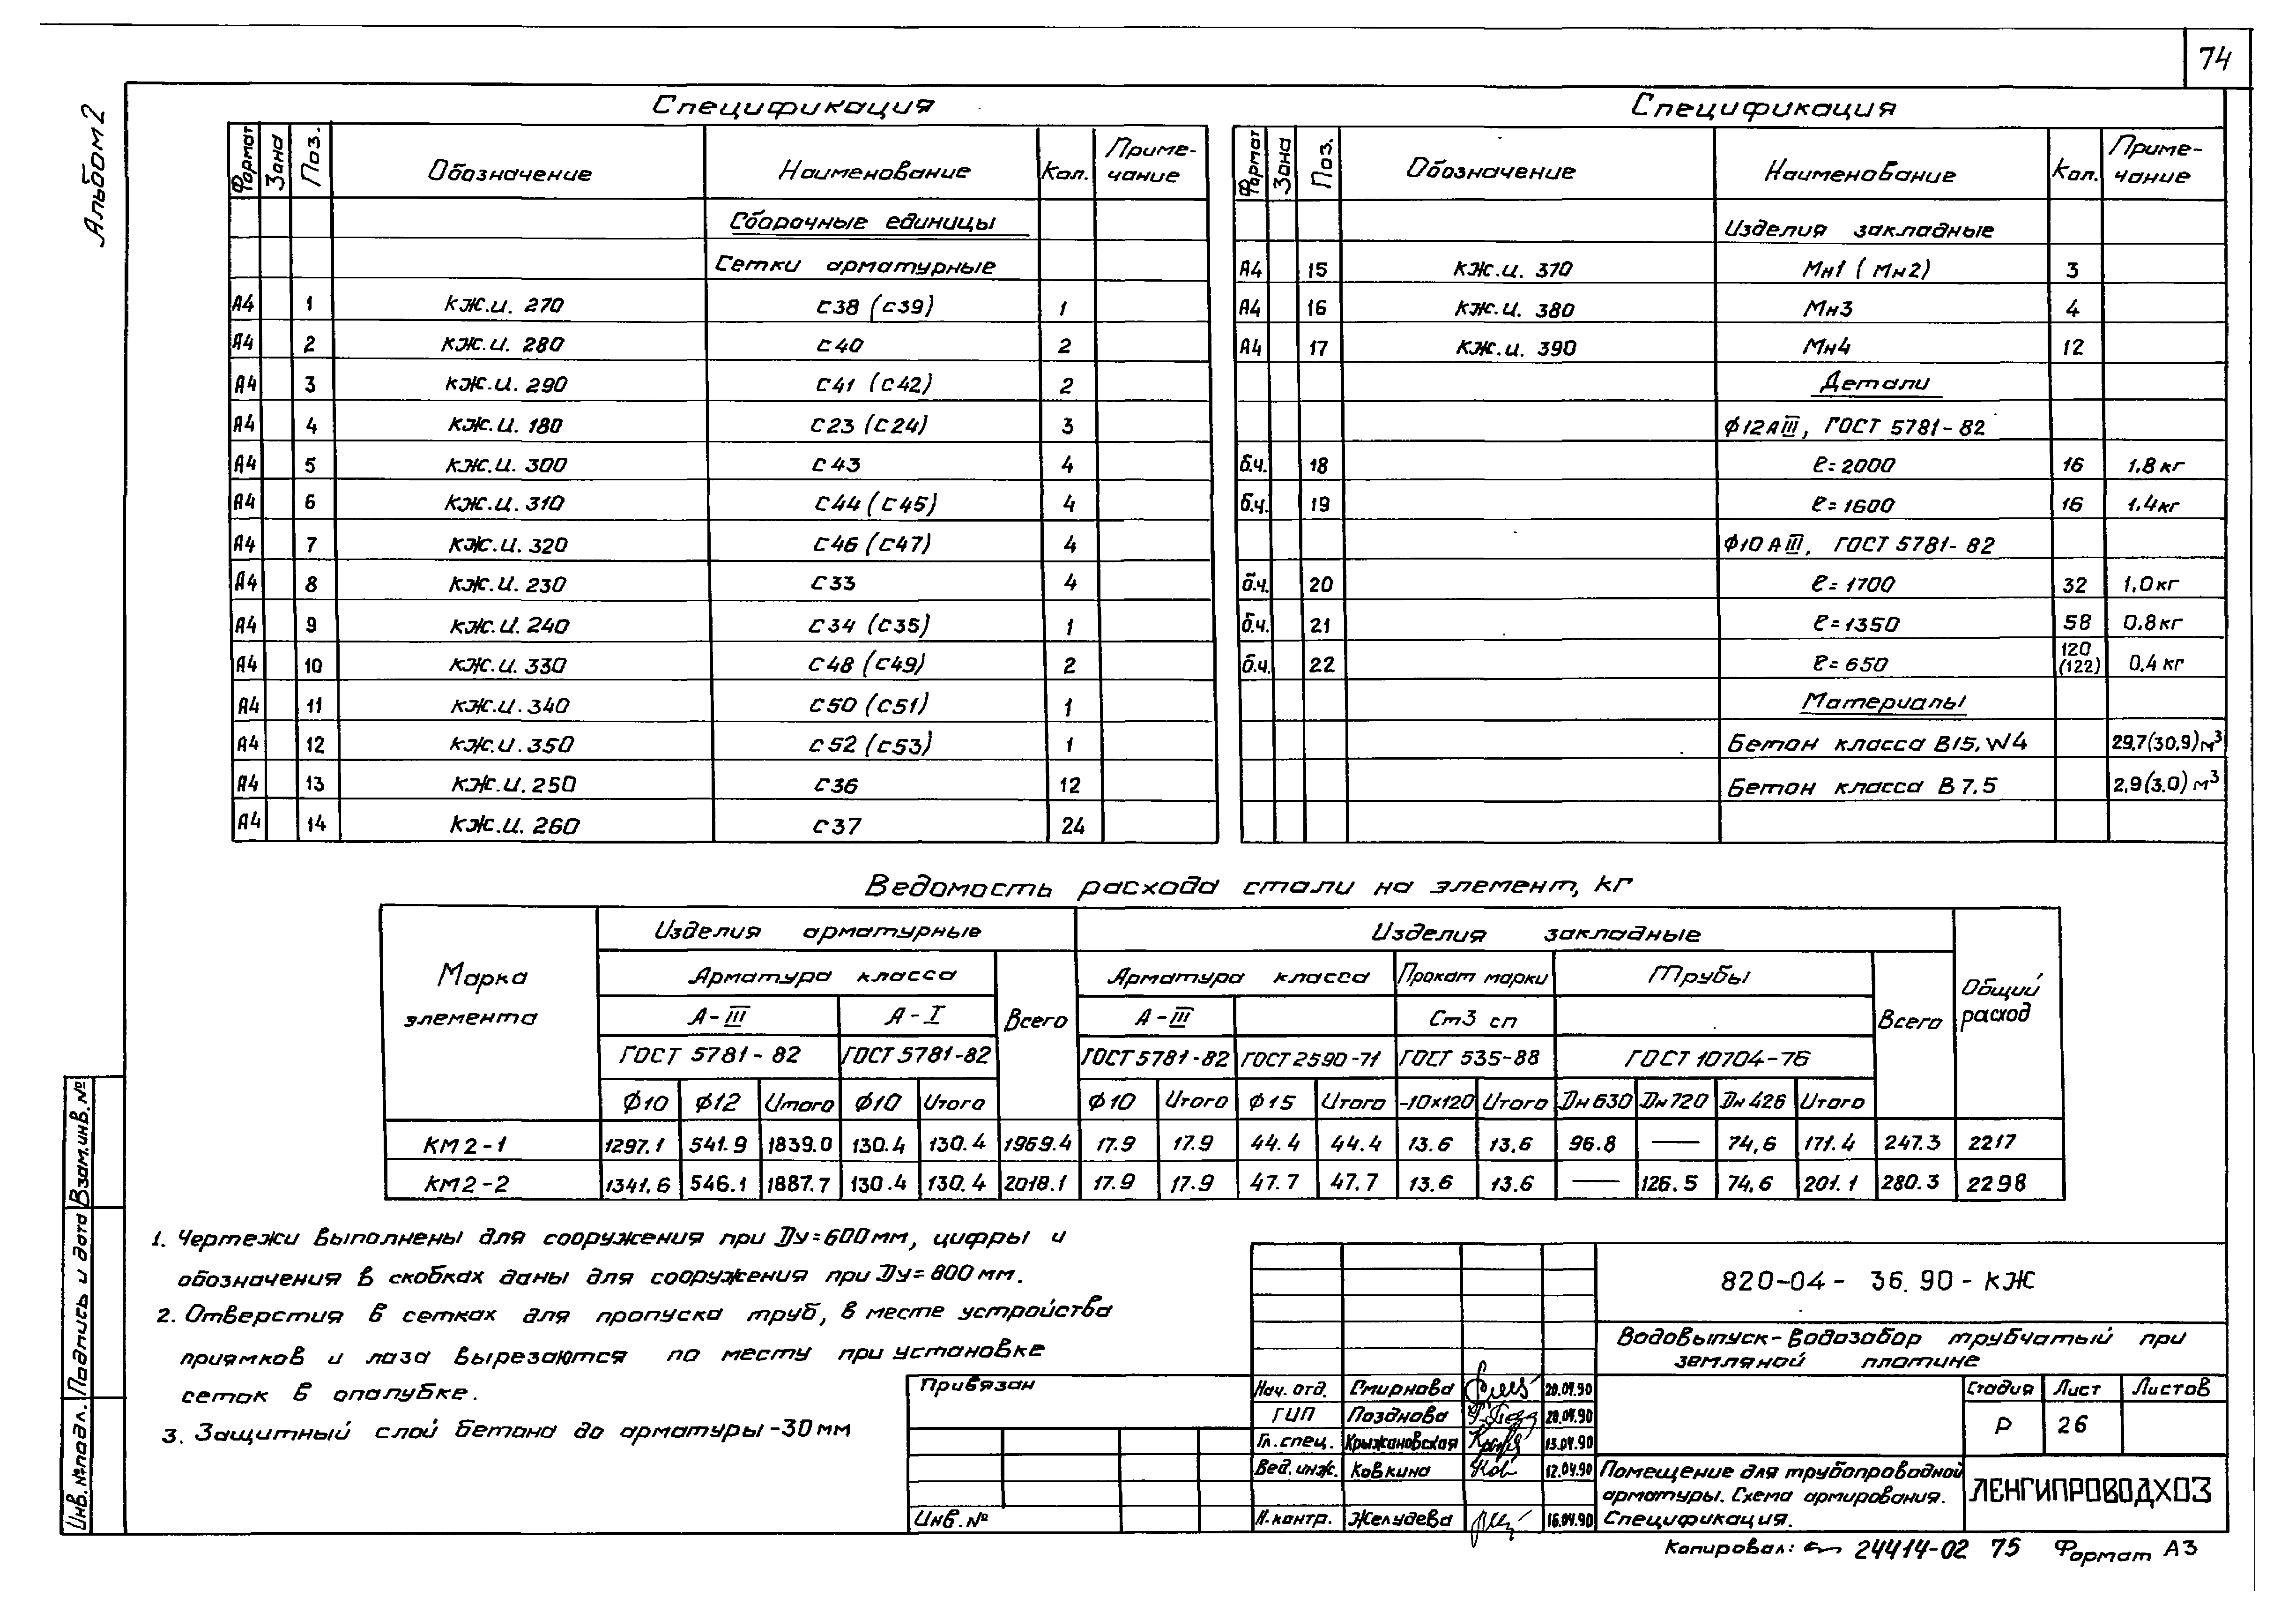 74
Альбом 2
Спецификация
Формат Зона Поз. Обозначение Наименование Кол. Приме-чание
Сборочные единицы
Сетки арматурные
А4 1 КЖ.И. 270 С38 (С39) 1
А4 2 КЖ.И. 280 С40 2
А4 3 КЖ.И. 290 С41 (С42) 2
А4 4 КЖ.И. 180 С23 (С24) 3
А4 5 КЖ.И. 300 С43 4
А4 6 КЖ.И. 310 С44 (С45) 4
А4 7 КЖ.И. 320 С46 (С47) 4
А4 8 КЖ.И. 230 С33 4
А4 9 КЖ.И. 240 С34 (С35) 1
А4 10 КЖ.И. 330 С48 (С49) 2
А4 11 КЖ.И. 340 С50 (С51) 1
А4 12 КЖ.И. 350 С52 (С53) 1
А4 13 КЖ.И. 250 С36 12
А4 14 КЖ.И. 260 С37 24
Спецификация
Формат Зона Поз. Обозначение Наименование Кол. Приме-чание
Изделия закладные
А4 15 КЖ.И. 370 Мн1 (Мн2) 3
А4 16 КЖ.И. 380 Мн3 4
А4 17 КЖ.И. 390 Мн4 12
Детали
Ф12АIII, ГОСТ 5781-82
б.ч. 18 ℓ=2000 16 1,8 кг
б.ч. 19 ℓ=1600 16 1,4 кг
Ф10АIII, ГОСТ 5781-82
б.ч. 20 ℓ=1700 32 1,0 кг
б.ч. 21 ℓ=1350 58 0.8 кг
б.ч. 22 ℓ=650 120 (122) 0,4 кг
Материалы
Бетон класса В15, W4 29,7(30,9) м³
Бетон класса В 7,5 2,9(3,0) м³
Ведомость расхода стали на элемент, кг
Марка элемента
Изделия арматурные Изделия закладные Общий расход
Арматура класса Всего Арматура класса Прокат марки Трубы Всего
А-III А-I А-III Ст3 сп
ГОСТ 5781-82 ГОСТ 5781-82 ГОСТ 5781-82 ГОСТ 2590-71 ГОСТ 535-88 ГОСТ 10704-76
Ф10 Ф12 Итого Ф10 Итого Ф10 Итого Ф15 Итого -10×120 Итого Дн 630 Дн 720 Дн 426 Итого
КМ2-1 1297.1 541.9 1839.0 130.4 130.4 1969.4 17.9 17.9 44.4 44.4 13.6 13.6 96.8 — 74,6 171.4 247.3 2217
КМ2-2 1341.6 546.1 1887.7 130.4 130.4 2018.1 17.9 17.9 47.7 47.7 13.6 13.6 — 126.5 74,6 201.1 280.3 2298
1. Чертежи выполнены для сооружения при Ду=600 мм, цифры и
обозначения в скобках даны для сооружения при Ду=800 мм.
2. Отверстия в сетках для пропуска труб, в месте устройства
приямков и лаза вырезаются по месту при установке
сеток в опалубке.
3. Защитный слой бетона до арматуры -30 мм
Взам.инв.№
Подпись и дата
Инв.№подл.
Привязан
Инв.№
820-04- 36.90-КЖ
Водовыпуск-водозабор трубчатый при
земляной плотине
Нач. отд. Смирнова 20.04.90
ГИП Позднова 20.04.90
Гл. спец. Крыжановская 13.04.90
Вед. инж. Ковкина 12.04.90
Н. контр. Желудева 16.04.90
Стадия Лист Листов
Р 26
Помещение для трубопроводной
арматуры. Схема армирования.
Спецификация.
ЛЕНГИПРОВОДХОЗ
Копировал: 24414-02 75 Формат А3